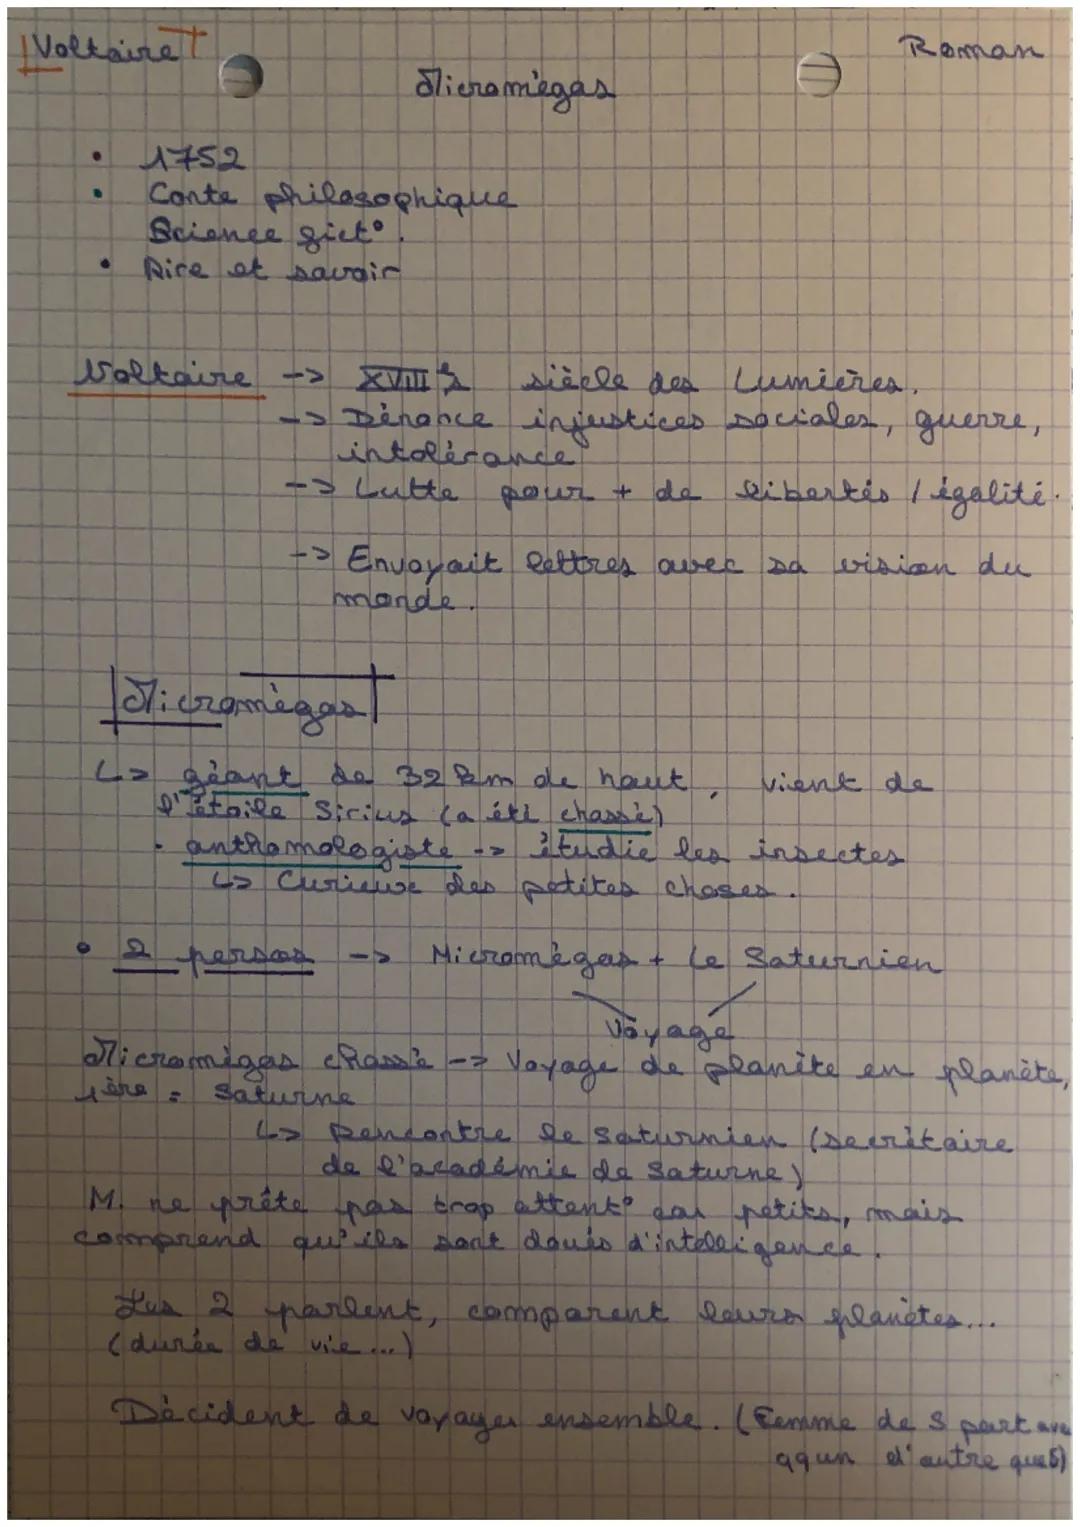 Voltaire
Roman
Micromégas
• 1752
• Conte philosophique
Science fict°.
• Rire et savoir
Voltaire -> XVIII e siècle des Lumières.
-> Dénonce injustices sociales, guerre,
intolérance
-> Lutte pour + de libertés / égalité.
-> Envoyait lettres avec sa vision du
monde.
Micromégas
↳ géant de 32 km de haut, vient de
l'étoile Sirius (a été chassé)
• anthomologiste -> étudie les insectes
↳ Curieux des petites choses.
• 2 persos -> Micromégas + Le Saturnien
Voyage
Micromégas chassé -> Voyage de planète en planète,
1ère = Saturne
↳ Rencontre le saturnien (secrétaire
de l'académie de Saturne)
M. ne prête pas trop attent° car petits, mais
comprend qu'ils sont doués d'intelligence.
Les 2 parlent, comparent leurs planètes...
(durée de vie...)
Décident de voyager ensemble. (Femme de S part ave
qqun d'autre